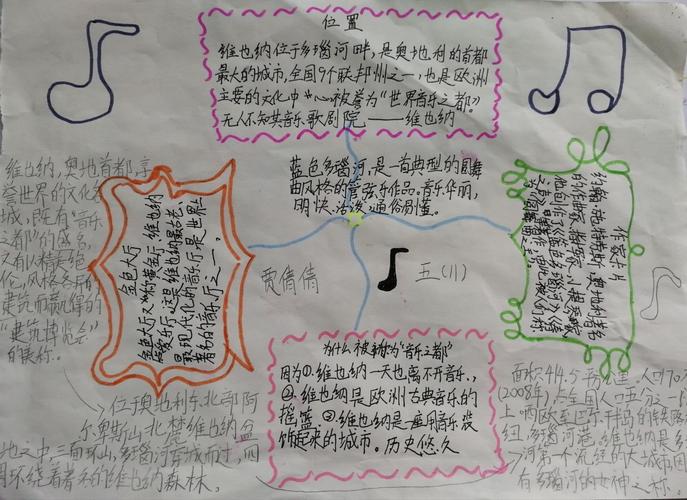 位置
维也纳位于多瑙河畔，是奥地利的首都
最大的城市，全国9个联邦州之一，也是欧洲
主要的文化中心，被誉为“世界音乐之都”。
无人不知其音乐，歌剧院——维也纳
蓝色多瑙河，是一首典型的圆舞
曲风格的管弦乐作品。音乐华丽，
明快、活泼、通俗易懂。
维也纳，奥地首都，享
誉世界的文化名
城，既有“音乐
之都”的盛名，
又有以精美绝
伦，风格各异的
建筑而赢得的
“建筑博览会”
的美称。
金色大厅
金色大厅又
音乐厅，这是维也纳最古老、
最现代化的音乐厅，是世界上
著名的音乐厅之一。
贾倩倩
五（11）
作家卡片
约翰
为什么被称为“音乐之都”
因为①.维也纳一天也离不开音乐，
②.维也纳是欧洲古典音乐的
摇篮，③.维也纳是一座用音乐装
饰起来的城市。历史悠久
位于奥地利东北部阿
尔卑斯山北麓维也纳盆
地之中，三面环山，多瑙河穿城而过，四
周环绕着著名的维也纳森林。
面积414.5平方公里，人口170
(2008年)，占全国人口五分一
纽，多瑙河港。维也纳是多
河第一个流经的大城市因
有多瑙河的女神之称。